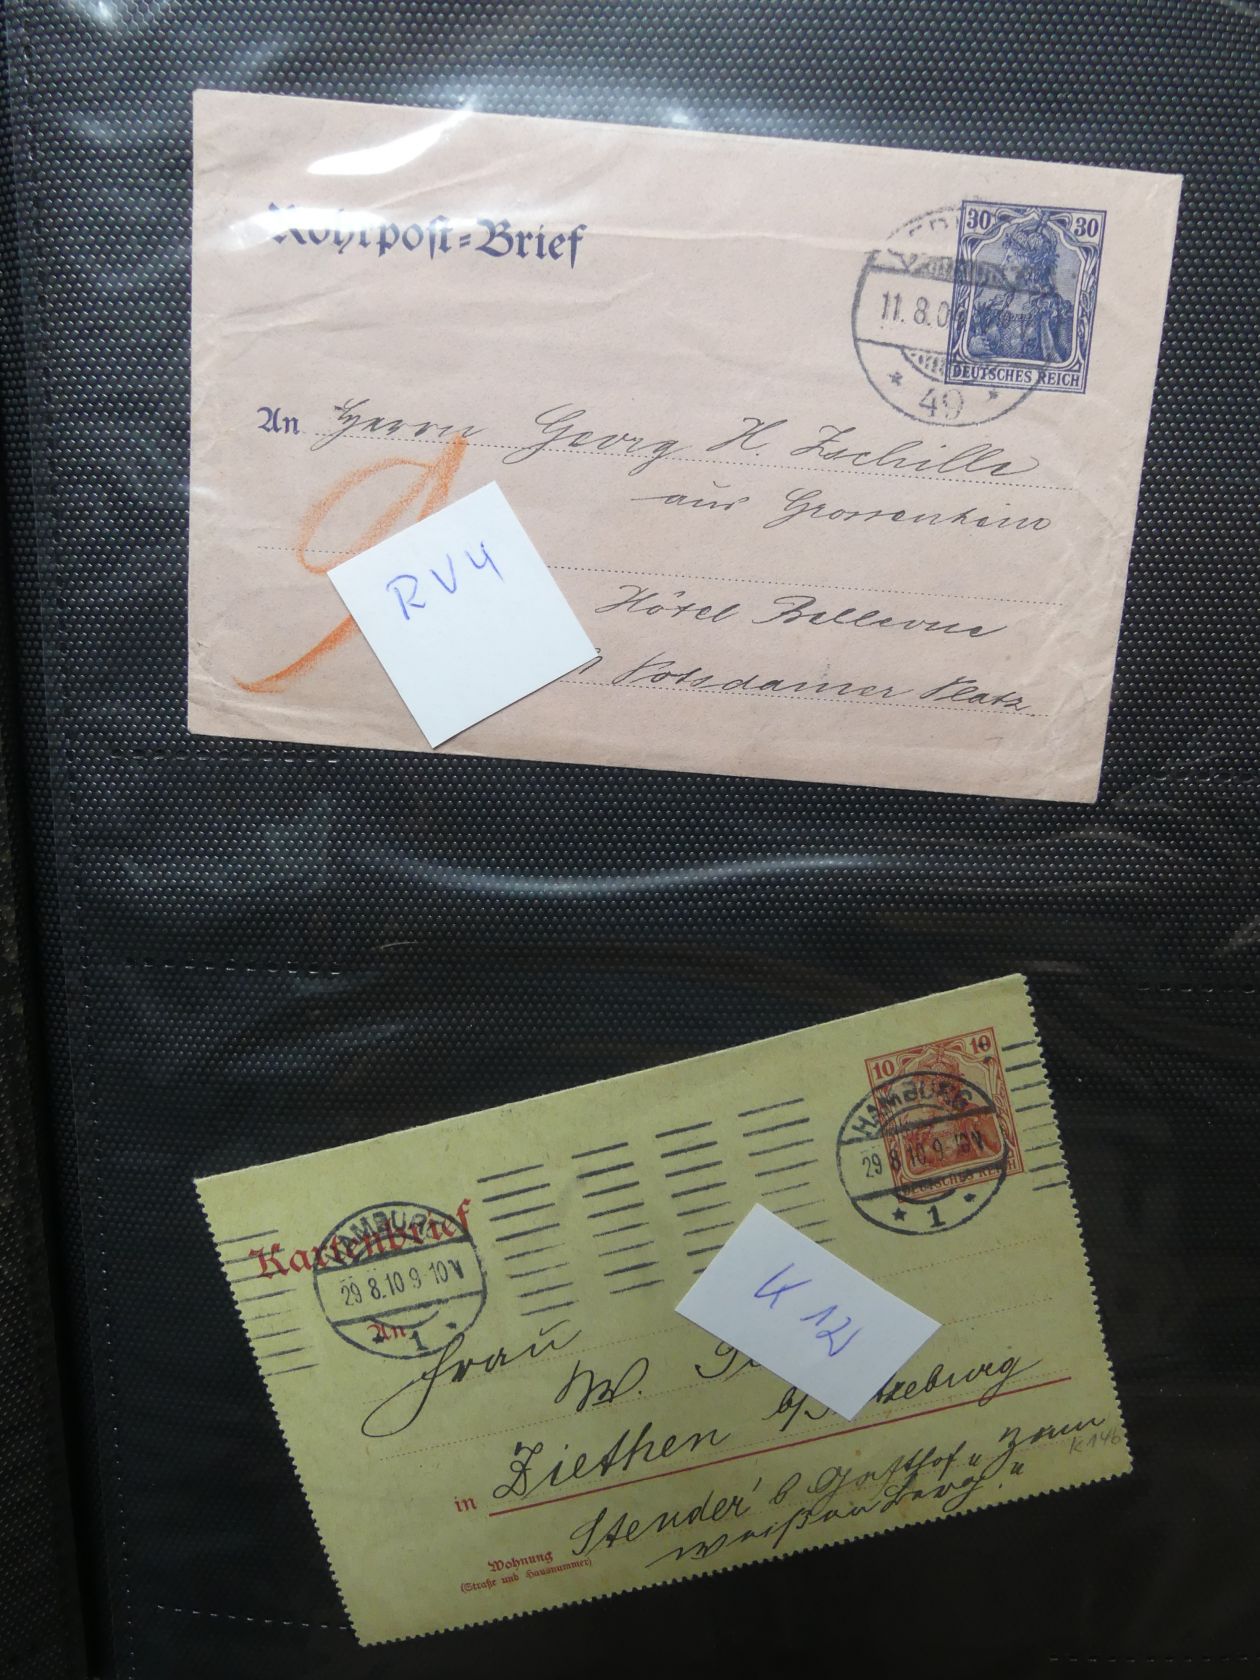 Rohrpost-Brief
30 30
DEUTSCHES REICH
11.8.0
* 49 *
An Herrn Georg H. Zschille
aus Grossenhain
Hôtel Bellevue
Potsdamer Platz
RV 4
10 10
DEUTSCHES REICH
HAMBURG
29.8.10.9-10V
* 1 *
Kartenbrief
HAMBURG
29.8.10.9-10V
* 1 *
An
Frau
W.
K 12
in Ziethen b/ Ratzeburg
Stender's Gasthof u zum
weißen Berg.
K 14b
Wohnung
(Straße und Hausnummer)